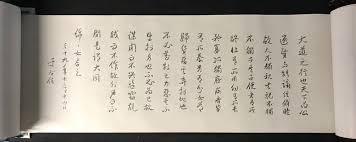 大道之行也天下為公
選賢與能講信修睦
故人不獨親其親不獨
子其子使老有所
終壯有所用幼有所長
矜寡孤獨廢疾者
皆有所養男有分女有
歸貨惡其棄於地也
不必藏於己力惡其不
出於身也不必為己是故
謀閉而不興盜竊亂
賊而不作故外戶而不
閉是謂大同
三十九年
于右任